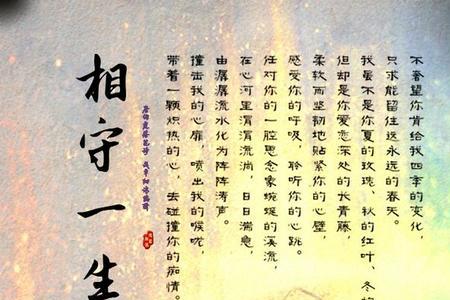 不奢望你肯给我四季的变化，
只求能留住这永远的春天。
我虽不是你夏的玫瑰、秋的红叶、冬的
但却是你爱恋深处的长青藤，
柔软而坚韧地贴紧你的心壁，
感受你的呼吸，聆听你的心跳。
任对你的一腔思念象蜿蜒的溪流，
在心河里涓涓流淌，日日湍急，
由潺潺流水化为阵阵涛声。
撞击我的心扉，喷出我的喉咙，
带着一颗炽热的心，去碰撞你的痴情。
相守一生